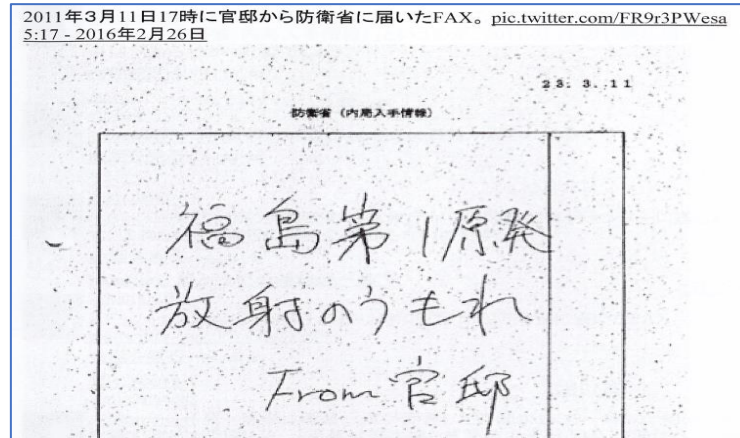 2011年3月11日17時に官邸から防衛省に届いたFAX。pic.twitter.com/FR9r3PWesa
5:17 - 2016年2月26日
23. 3. 11
防衛省 (内局入手情報)
福島第1原発
放射のうもれ
From官邸